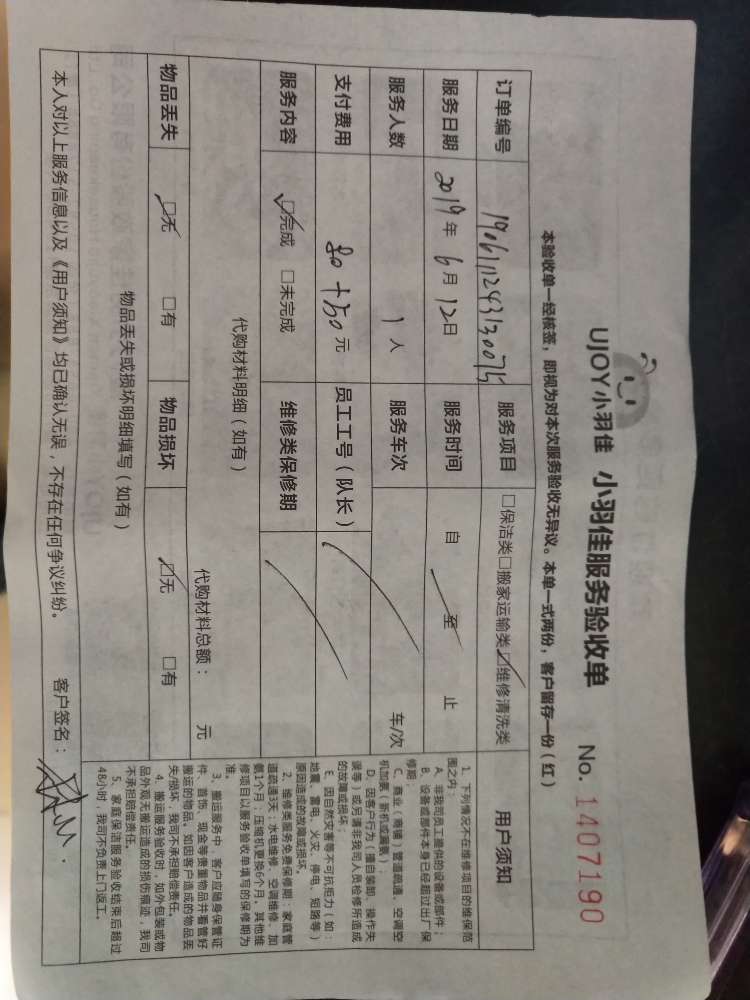 UJOY小羽佳 小羽佳服务验收单 No. 1407190
本验收单一经核签，即视为对本次服务验收无异议。本单一式两份，客户留存一份（红）
订单编号 服务项目 □保洁类□搬家运输类☑维修清洗类
服务日期 2019年 6月 12日 服务时间 自 至 止
服务人数 1 人 服务车次 车/次
支付费用 元 员工工号（队长）
服务内容 ☑完成 □未完成 维修类保修期
代购材料明细（如有）
代购材料总额： 元
物品丢失 ☑无 □有 物品损坏 ☑无 □有
物品丢失或损坏明细填写（如有）
本人对以上服务信息以及《用户须知》均已确认无误，不存在任何争议纠纷。 客户签名：
用户须知
1. 下列情况不在维修项目的维保范
围之内：
A. 非我司员工提供的设备或部件；
B. 设备或部件本身已经超过出厂保
修期；
C. 商业（商铺）管道疏通、空调空
机加氨（新机或漏氨）；
D. 因客户行为（擅自装卸、操作失
误等）或另请非我司人员检修所造成
的故障或损坏；
E. 因自然灾害等不可抗拒力（如：
地震、雷电、火灾、停电、短路等）
原因造成的故障或损坏。
2. 维修类服务免费保修期：家庭管
道疏通3天；水电维修、空调维修、加
氨1个月；压缩机更换6个月。其他维
修项目以服务验收单填写的保修期为
准。
3. 搬运服务中，客户应随身保管证
件、首饰、现金等贵重物品并看管好
搬运的物品。如因客户造成的物品丢
失/损坏，我司不承担赔偿责任。
4. 搬运服务验收时，如外包装或物
品外观无搬运造成的损伤痕迹，我司
不承担赔偿责任。
5. 家庭保洁服务验收结束后超过
48小时，我司不负责上门返工。